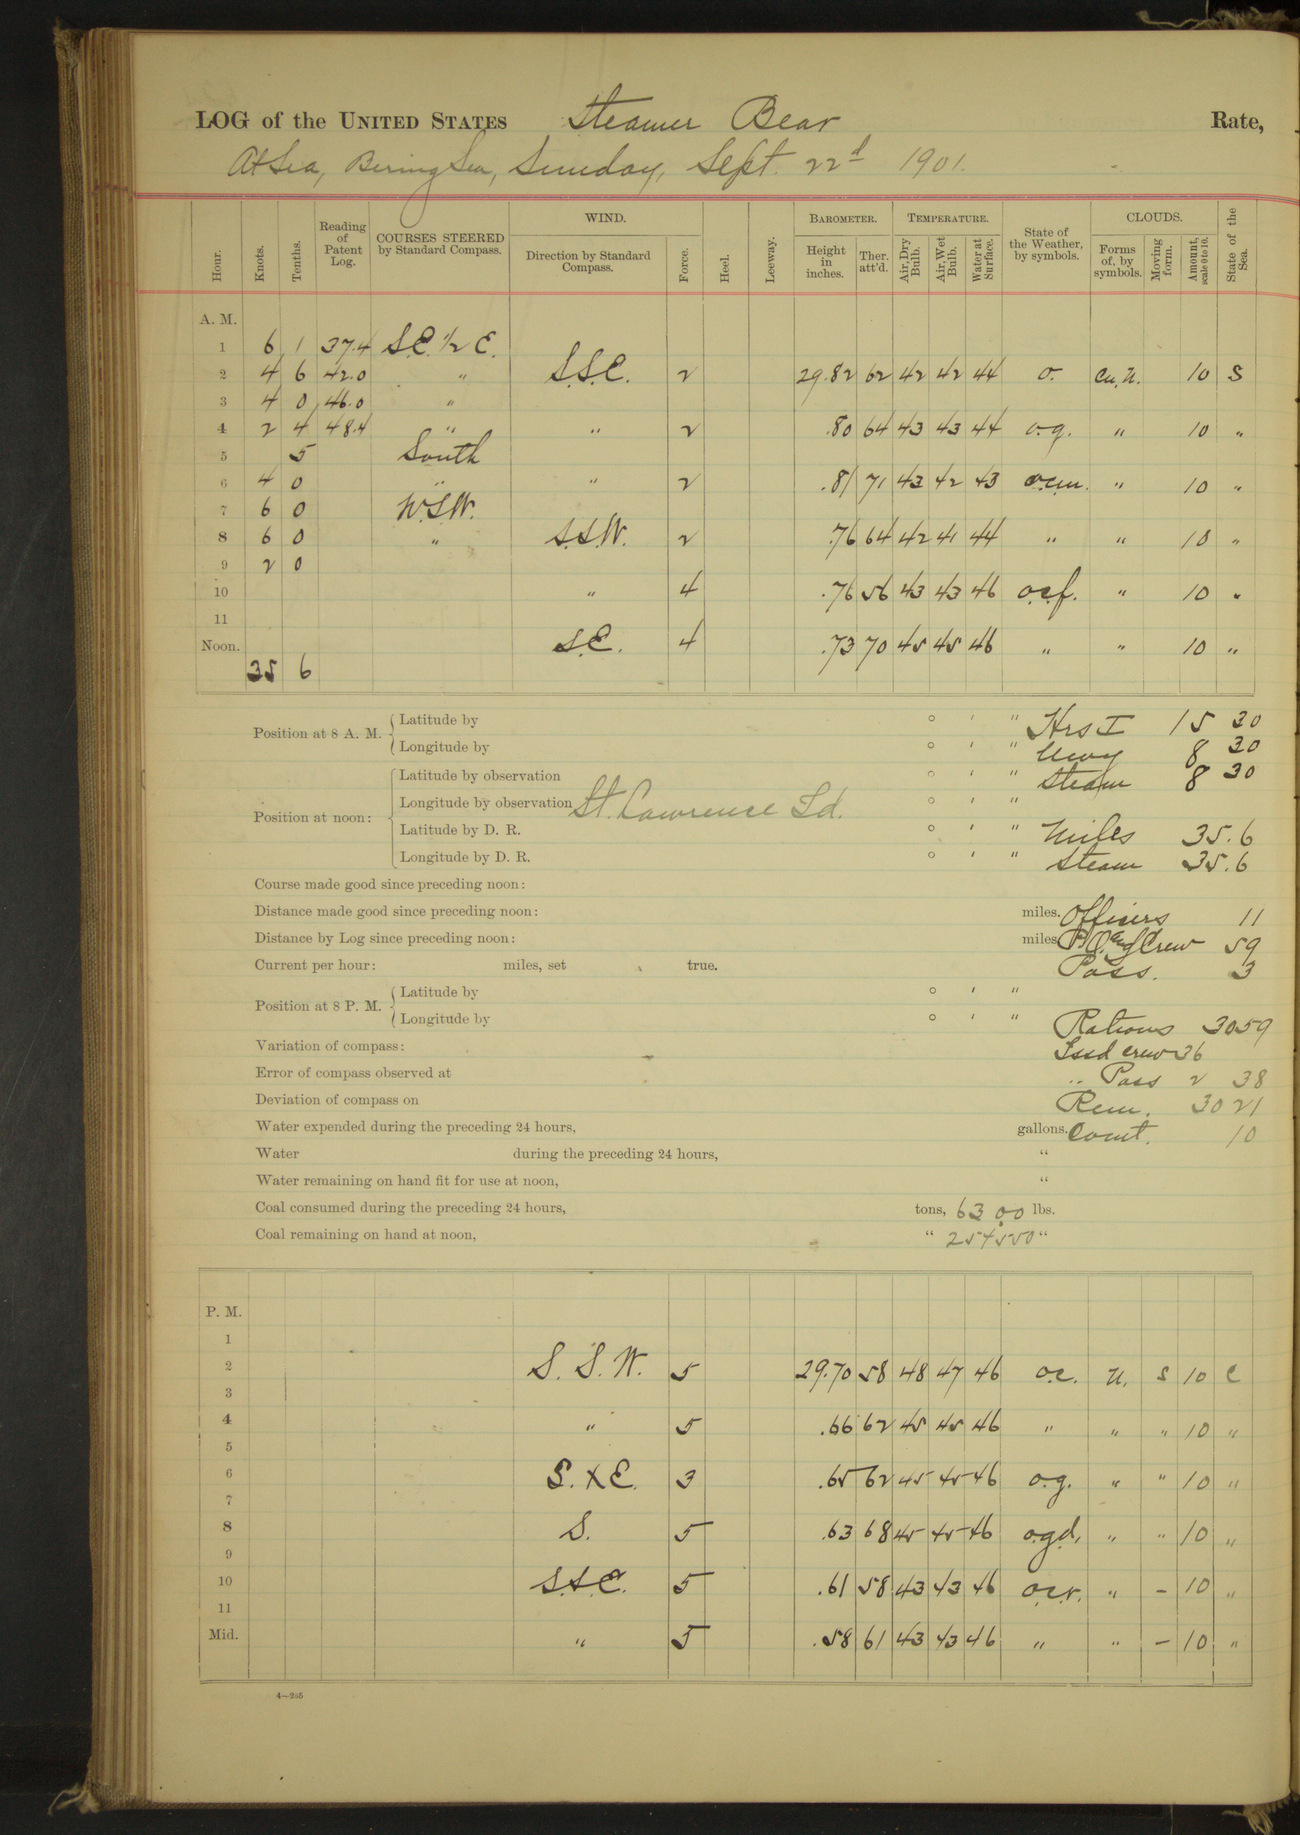 LOG of the UNITED STATES Steamer Bear Rate,
At Sea, Bering Sea, Sunday, Sept. 22d 1901.
Hour. Knots. Tenths. Reading of Patent Log. COURSES STEERED by Standard Compass. WIND. Direction by Standard Compass. Force. Heel. Leeway. BAROMETER. Height in inches. Ther. att'd. TEMPERATURE. Air, Dry Bulb. Air, Wet Bulb. Water at Surface. State of the Weather, by symbols. CLOUDS. Forms of, by symbols. Moving form. Amount, scale 0 to 10. State of the Sea.
A. M.
1 6 1 37.4 S.E. 1/2 E.
2 4 6 42.0 " S.S.E. 2 29.82 62 42 42 44 o. Cu. N. 10 S
3 4 0 46.0 "
4 2 4 48.4 " " 2 .80 64 43 43 44 o.g. " 10 "
5 5 South
6 4 0 " " 2 .81 71 43 42 43 o.c.m. " 10 "
7 6 0 W.S.W.
8 6 0 " S.S.W. 2 .76 64 42 41 44 " " 10 "
9 2 0
10 " 4 .76 56 43 43 46 o.c.f. " 10 "
11
Noon. S.E. 4 .73 70 45 45 46 " " 10 "
35 6
Position at 8 A. M. Latitude by ° ' " Hrs I 15 30
Longitude by ° ' " Uwy 8 30
Position at noon: Latitude by observation ° ' " Steam 8 30
Longitude by observation St. Lawrence Id. ° ' "
Latitude by D. R. ° ' " Miles 35.6
Longitude by D. R. ° ' " Steam 35.6
Course made good since preceding noon:
Distance made good since preceding noon: miles. Officers 11
Distance by Log since preceding noon: miles P.O. and Crew 59
Current per hour: miles, set true. Pass. 3
Position at 8 P. M. Latitude by ° ' "
Longitude by ° ' " Rations 3059
Variation of compass: Issd crew 36
Error of compass observed at " Pass 2 38
Deviation of compass on Rem. 3021
Water expended during the preceding 24 hours, gallons. Comt. 10
Water during the preceding 24 hours, "
Water remaining on hand fit for use at noon, "
Coal consumed during the preceding 24 hours, tons, 6300 lbs.
Coal remaining on hand at noon, " 254550 "
P. M.
1
2 S. S. W. 5 29.70 58 48 47 46 o.c. N. S 10 C
3
4 " 5 .66 62 45 45 46 " " " 10 "
5
6 S. X E. 3 .65 62 45 45 46 o.g. " " 10 "
7
8 S. 5 .63 68 45 45 46 o.g.d. " " 10 "
9
10 S.S.E. 5 .61 58 43 43 46 o.c.r. " – 10 "
11
Mid. " 5 .58 61 43 43 46 " " – 10 "
4—285